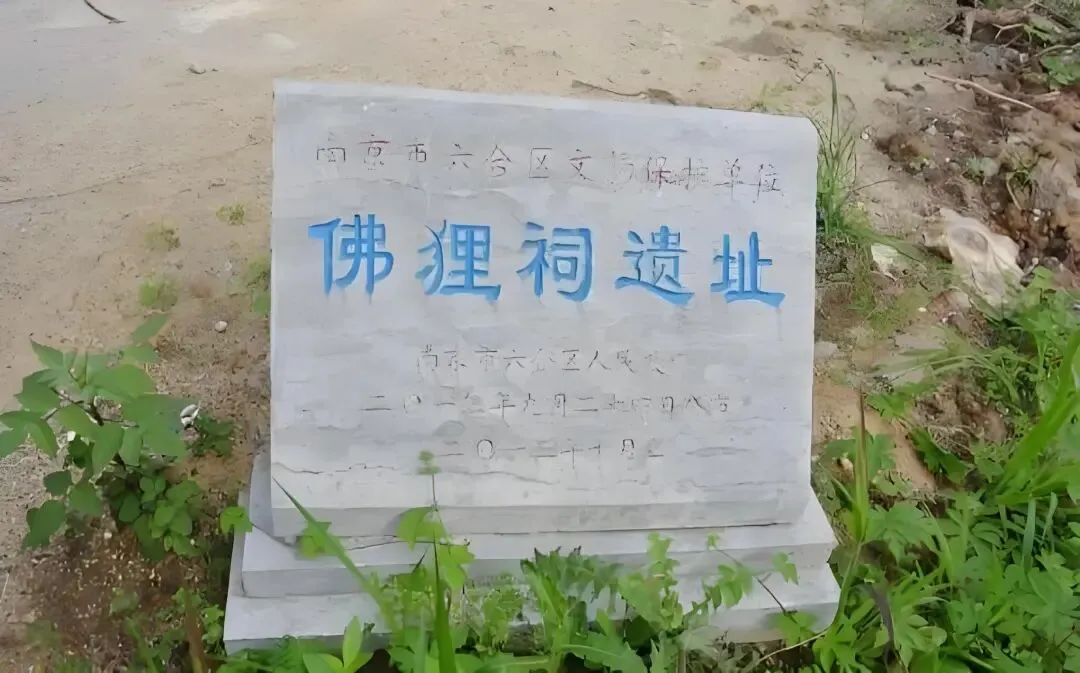 南京市六合区文物保护单位
佛狸祠遗址
南京市六合区人民
二〇一二年九月二十 日公布
二〇一二年十月